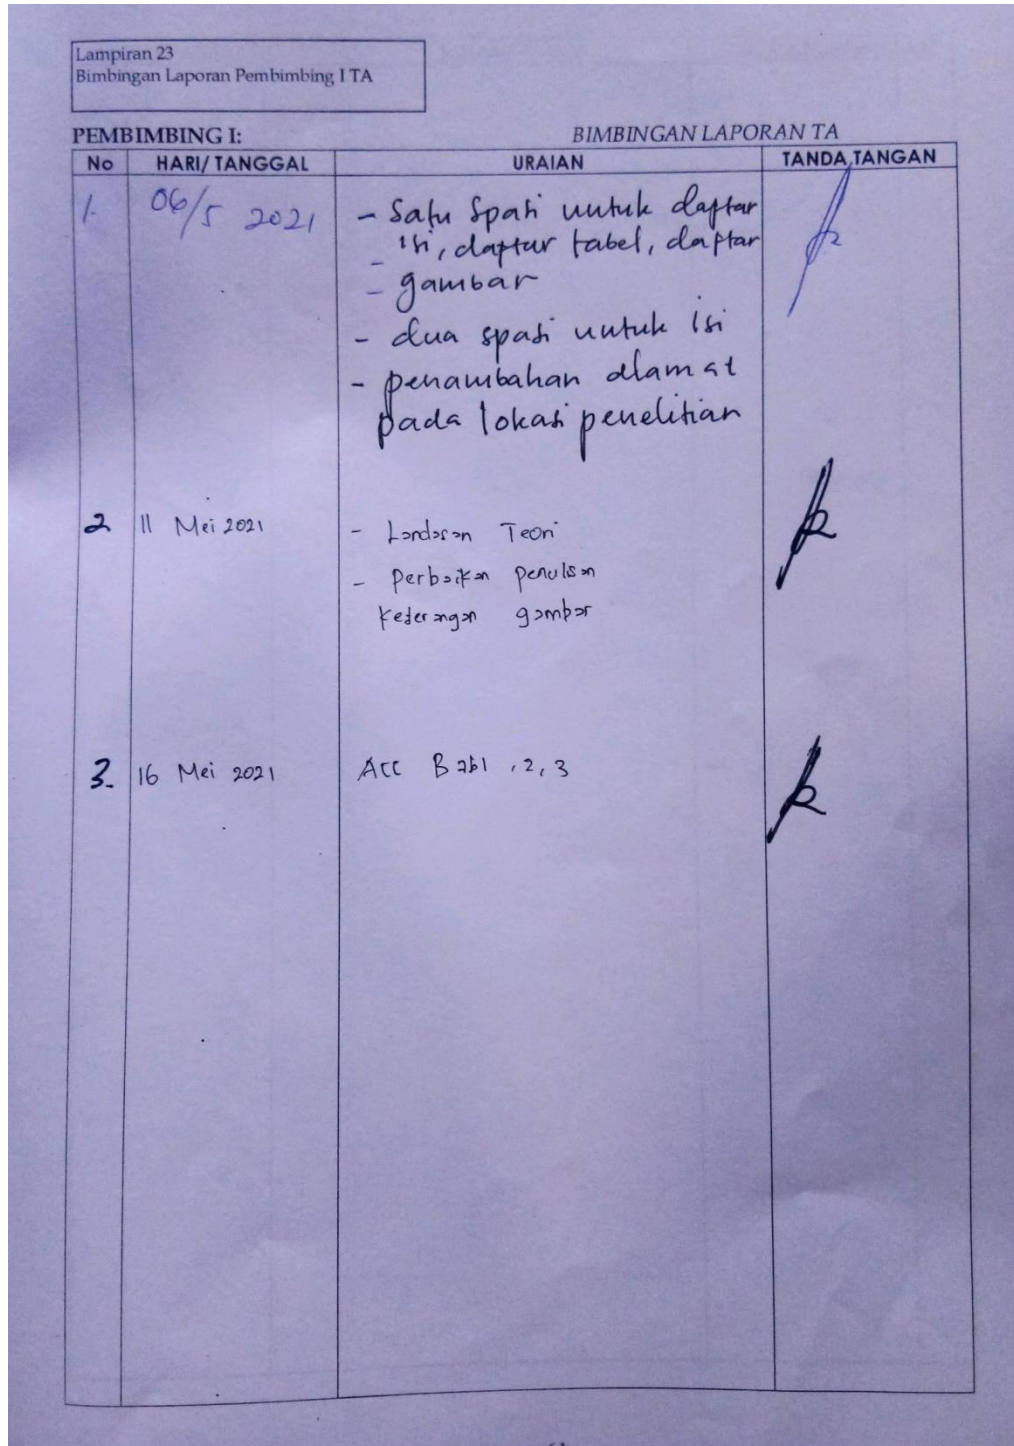 Lampiran 23
Bimbingan Laporan Pembimbing I TA
PEMBIMBING I: BIMBINGAN LAPORAN TA
No HARI/ TANGGAL URAIAN TANDA TANGAN
1. 06/5 2021 - Satu Spasi untuk daftar
- isi, daftar tabel, daftar
- gambar
- dua spasi untuk isi
- penambahan alamat
pada lokasi penelitian
2 11 Mei 2021 - Landasan Teori
- Perbaikan penulisan
keterangan gambar
3. 16 Mei 2021 Acc Bab 1, 2, 3